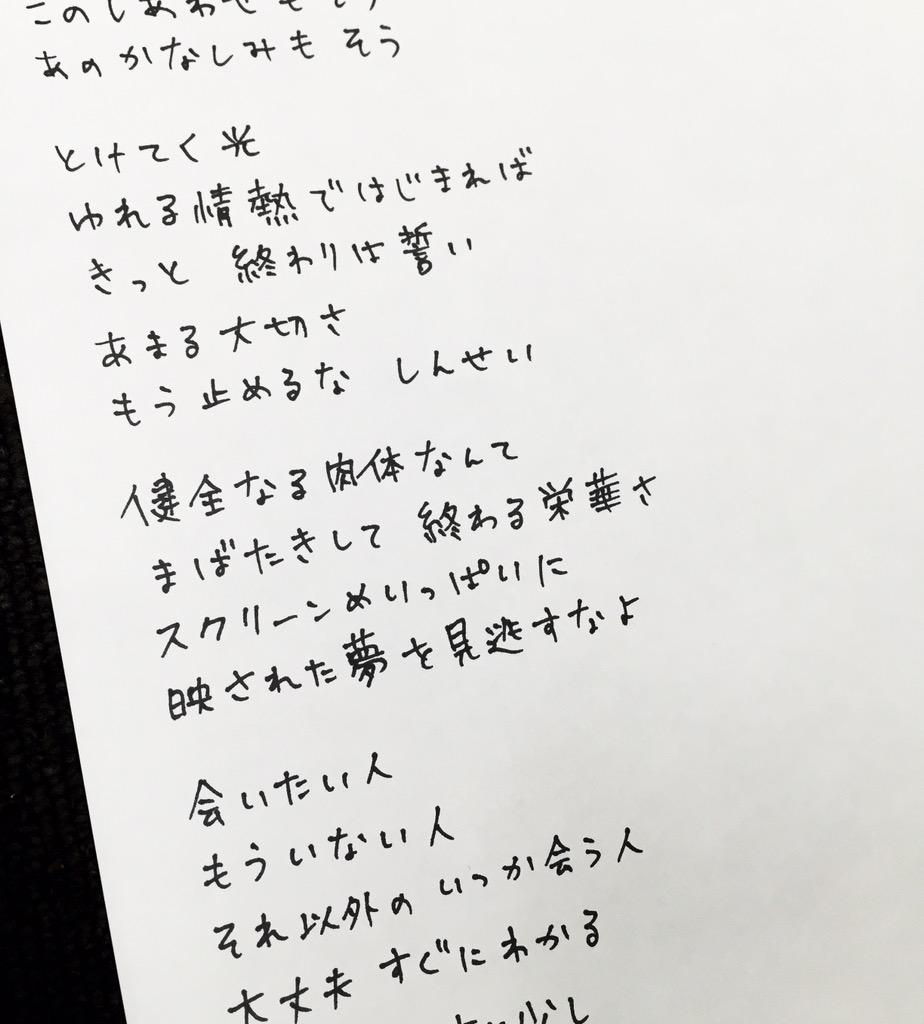 このしあわせもそう
あのかなしみも そう
とけてく光
ゆれる情熱ではじまれば
きっと 終わりは誓い
あまる大切さ
もう止めるな しんせい
健全なる肉体なんて
まばたきして 終わる栄華さ
スクリーンめいっぱいに
映された夢を見逃すなよ
会いたい人
もういない人
それ以外の いつか会う人
大丈夫 すぐにわかる
少し